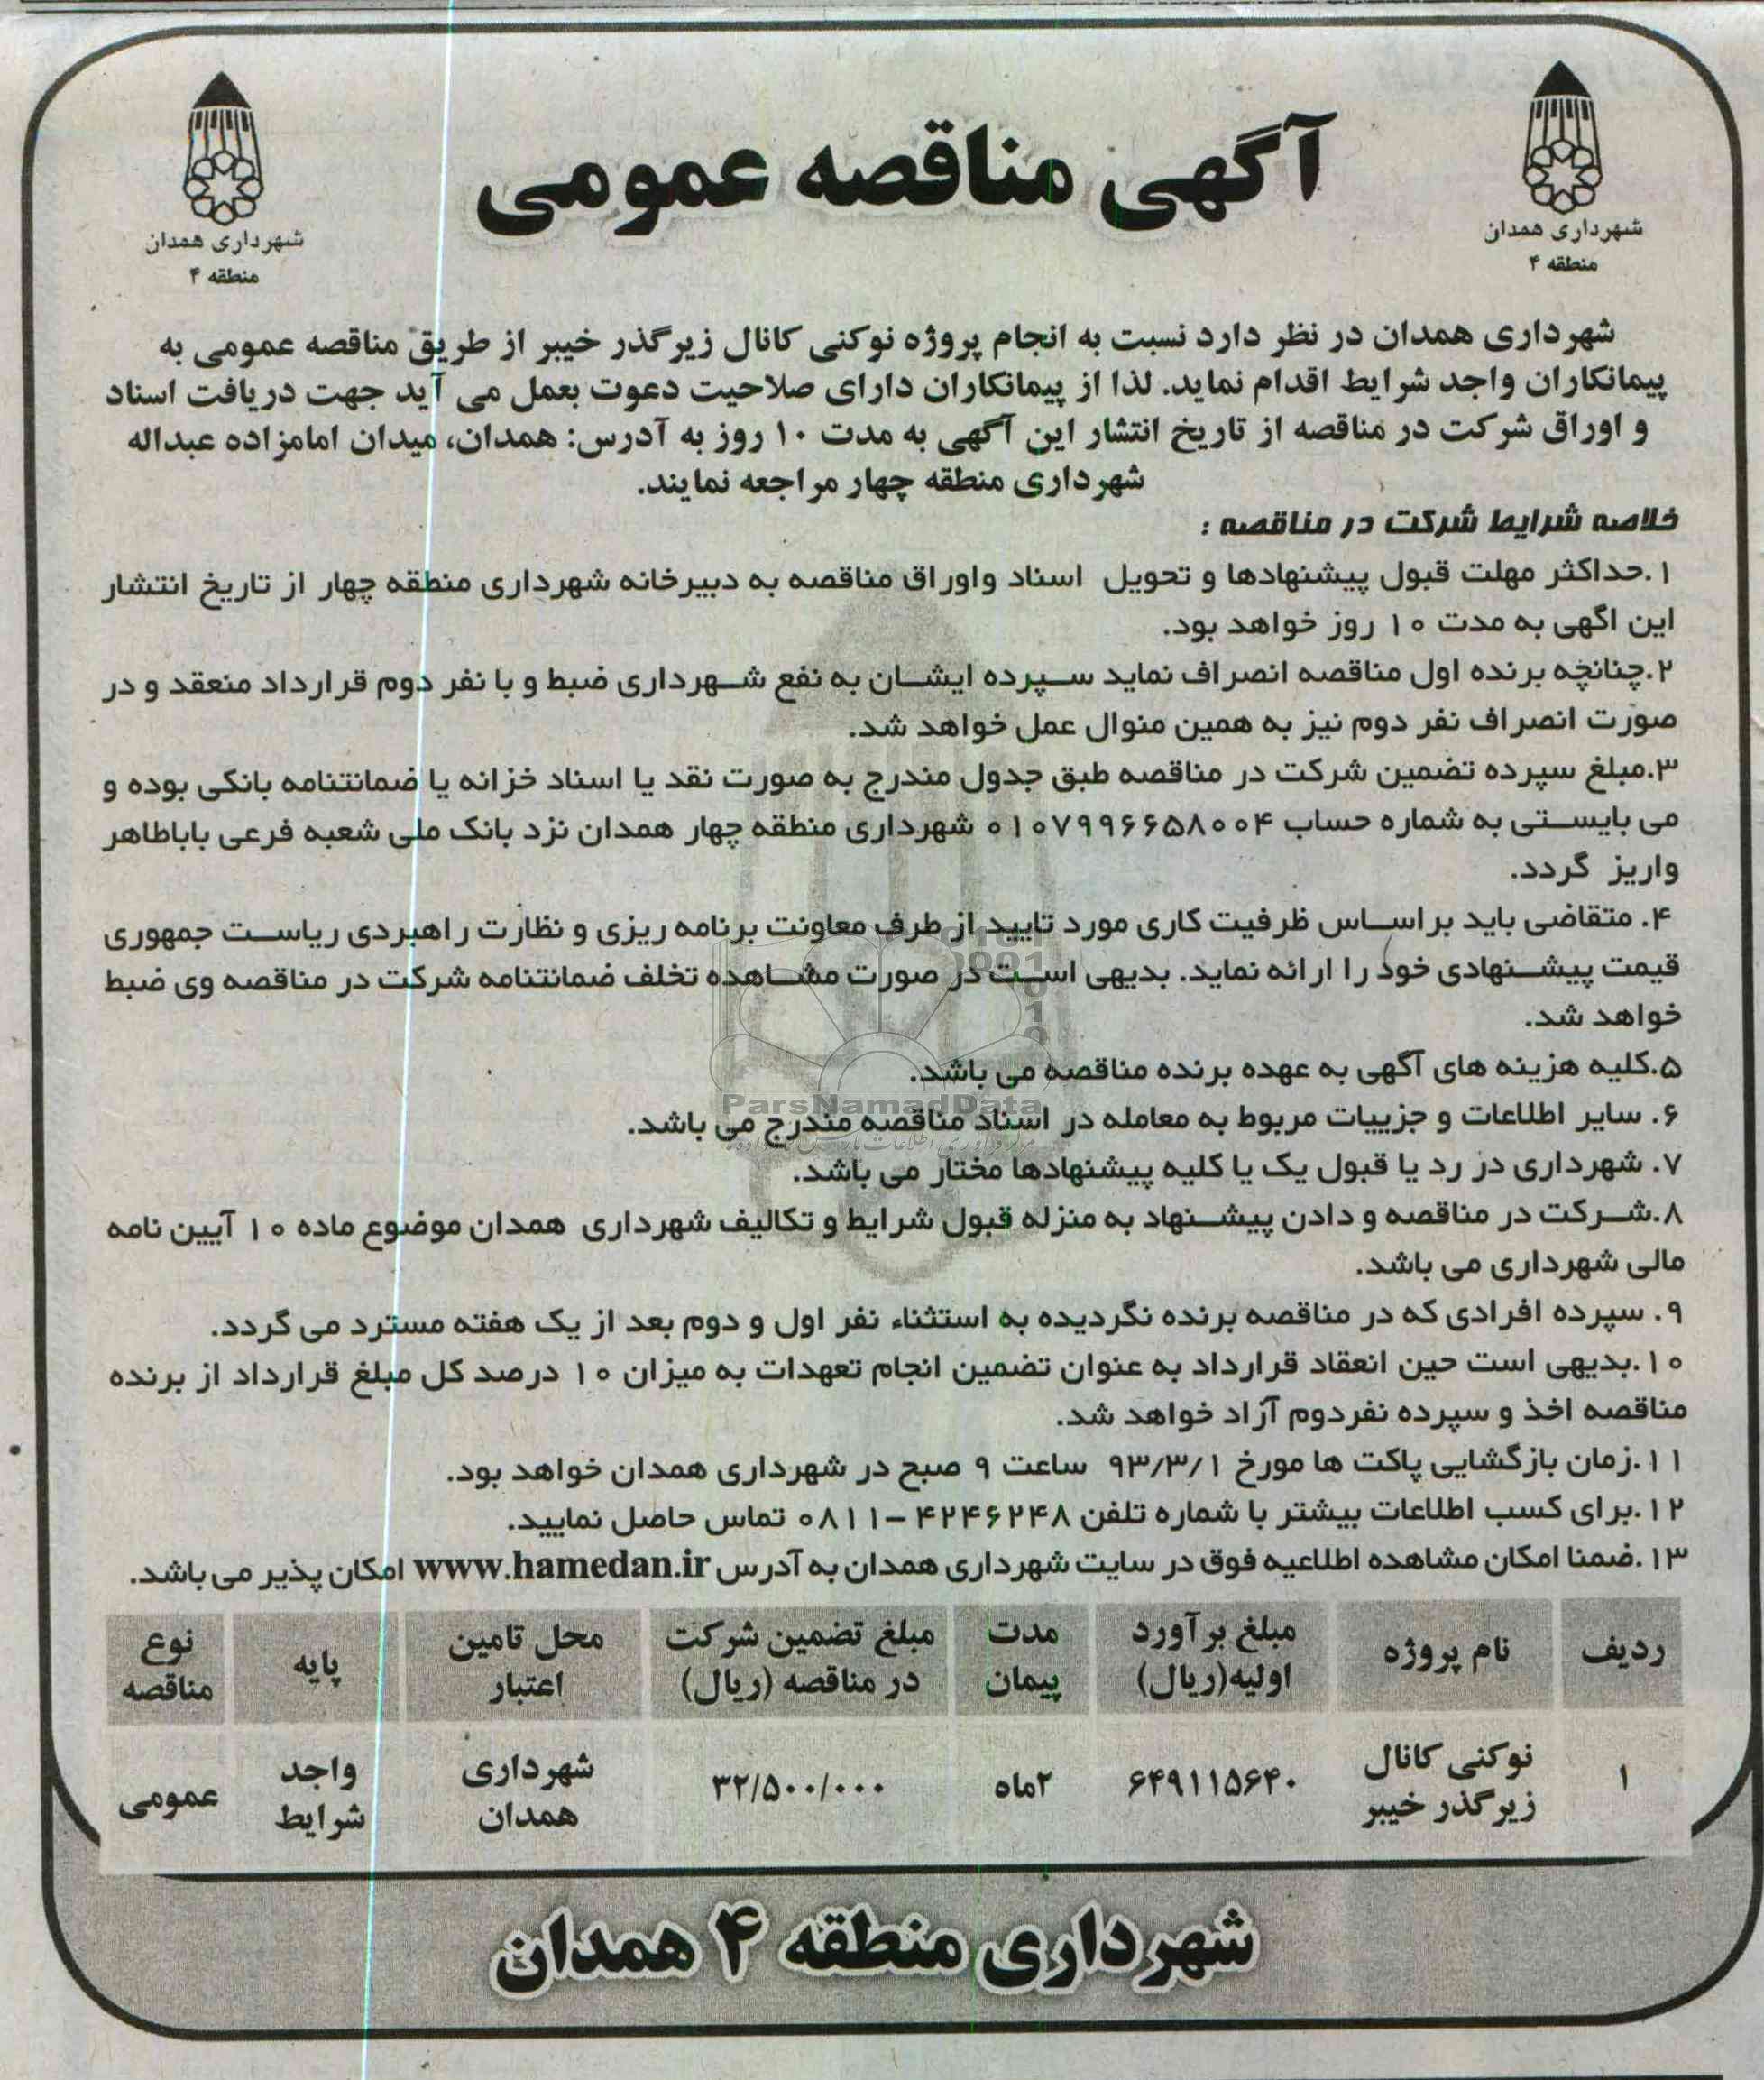 آگهی مناقصه عمومی
شهرداری همدان
منطقه ۴
شهرداری همدان
منطقه ۴
شهرداری همدان در نظر دارد نسبت به انجام پروژه نوکنی کانال زیرگذر خیبر از طریق مناقصه عمومی به
پیمانکاران واجد شرایط اقدام نماید. لذا از پیمانکاران دارای صلاحیت دعوت بعمل می آید جهت دریافت اسناد
و اوراق شرکت در مناقصه از تاریخ انتشار این آگهی به مدت ۱۰ روز به آدرس: همدان، میدان امامزاده عبداله
شهرداری منطقه چهار مراجعه نمایند.
خلاصه شرایط شرکت در مناقصه :
۱.حداکثر مهلت قبول پیشنهادها و تحویل اسناد واوراق مناقصه به دبیرخانه شهرداری منطقه چهار از تاریخ انتشار
این اگهی به مدت ۱۰ روز خواهد بود.
۲.چنانچه برنده اول مناقصه انصراف نماید سپرده ایشان به نفع شهرداری ضبط و با نفر دوم قرارداد منعقد و در
صورت انصراف نفر دوم نیز به همین منوال عمل خواهد شد.
۳.مبلغ سپرده تضمین شرکت در مناقصه طبق جدول مندرج به صورت نقد یا اسناد خزانه یا ضمانتنامه بانکی بوده و
می بایستی به شماره حساب ۰۱۰۷۹۹۶۶۵۸۰۰۴ شهرداری منطقه چهار همدان نزد بانک ملی شعبه فرعی باباطاهر
واریز گردد.
۴. متقاضی باید براساس ظرفیت کاری مورد تایید از طرف معاونت برنامه ریزی و نظارت راهبردی ریاست جمهوری
قیمت پیشنهادی خود را ارائه نماید. بدیهی است در صورت مشاهده تخلف ضمانتنامه شرکت در مناقصه وی ضبط
خواهد شد.
۵.کلیه هزینه های آگهی به عهده برنده مناقصه می باشد.
ParsNamadData
۶. سایر اطلاعات و جزییات مربوط به معامله در اسناد مناقصه مندرج می باشد.
۷. شهرداری در رد یا قبول یک یا کلیه پیشنهادها مختار می باشد.
۸.شرکت در مناقصه و دادن پیشنهاد به منزله قبول شرایط و تکالیف شهرداری همدان موضوع ماده ۱۰ آیین نامه
مالی شهرداری می باشد.
۹. سپرده افرادی که در مناقصه برنده نگردیده به استثناء نفر اول و دوم بعد از یک هفته مسترد می گردد.
۱۰.بدیهی است حین انعقاد قرارداد به عنوان تضمین انجام تعهدات به میزان ۱۰ درصد کل مبلغ قرارداد از برنده
مناقصه اخذ و سپرده نفردوم آزاد خواهد شد.
۱۱.زمان بازگشایی پاکت ها مورخ ۹۳/۳/۱ ساعت ۹ صبح در شهرداری همدان خواهد بود.
۱۲.برای کسب اطلاعات بیشتر با شماره تلفن ۴۲۴۶۲۴۸-۰۸۱۱ تماس حاصل نمایید.
۱۳.ضمنا امکان مشاهده اطلاعیه فوق در سایت شهرداری همدان به آدرس www.hamedan.ir امکان پذیر می باشد.
ردیف نام پروژه مبلغ برآورد اولیه(ریال) مدت پیمان مبلغ تضمین شرکت در مناقصه (ریال) محل تامین اعتبار پایه نوع مناقصه
۱ نوکنی کانال زیرگذر خیبر ۶۴۹۱۱۵۶۴۰ ۲ماه ۳۲/۵۰۰/۰۰۰ شهرداری همدان واجد شرایط عمومی
شهرداری منطقه ۴ همدان